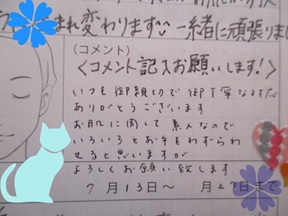 まれ変わります^^ 一緒に頑張りまし
(コメント)
〈コメント記入お願いします!〉
いつも御親切で御丁寧な
ありがとうございます
お肌に関して素人なので
いろいろとお手もわずらわ
せると思いますが
よろしくお願い致します
7月13日～ 月27日まで